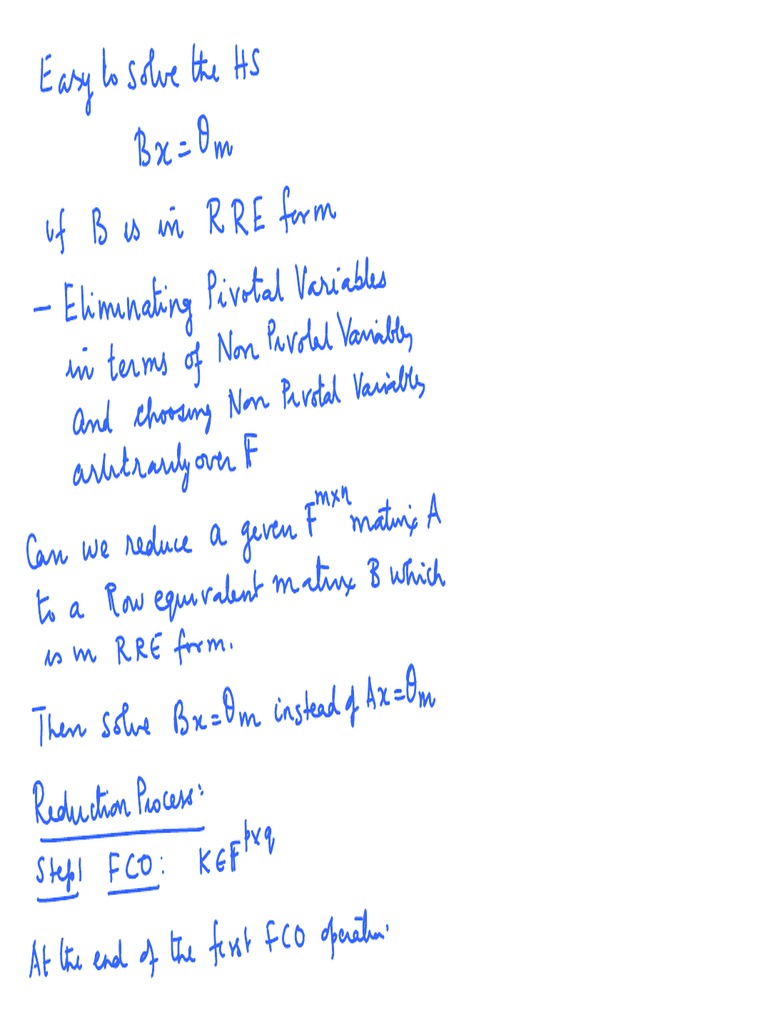 Easy to solve the HS
Bx = θm
if B is in RRE form
- Eliminating Pivotal Variables
in terms of Non Pivotal Variables
and choosing Non Pivotal Variables
arbitrarily over F
Can we reduce a given F^{m×n} matrix A
to a Row equivalent matrix B which
is in RRE form.
Then solve Bx = θm instead of Ax = θm
Reduction Process:
Step1 FCO: K∈F^{p×q}
At the end of the first FCO operation.